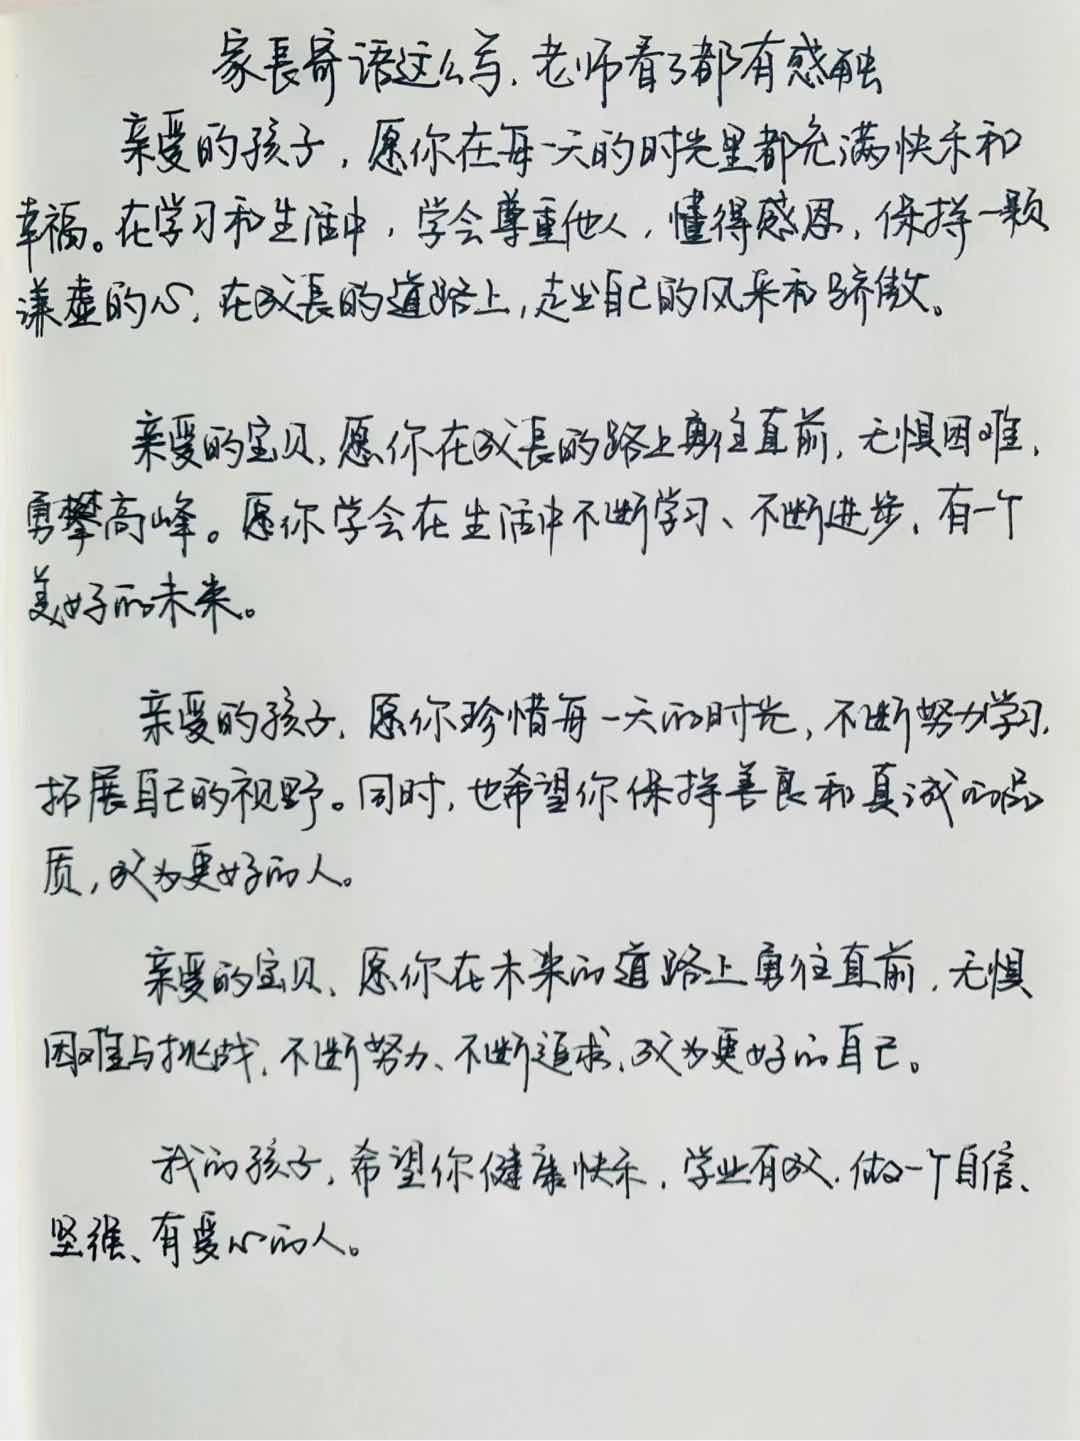 家長寄语这么写,老师看了都有感触
亲爱的孩子,愿你在每一天的时光里都充满快乐和
幸福。在学习和生活中,学会尊重他人,懂得感恩,保持一颗
谦虚的心,在成長的道路上,走出自己的风采和骄傲。
亲爱的宝贝,愿你在成長的路上勇往直前,无惧困难,
勇攀高峰。愿你学会在生活中不断学习、不断进步,有一个
美好的未来。
亲爱的孩子,愿你珍惜每一天的时光,不断努力学习,
拓展自己的视野。同时,也希望你保持善良和真诚的品
质,成为更好的人。
亲爱的宝贝、愿你在未来的道路上勇往直前,无惧
困难与挑战,不断努力、不断追求,成为更好的自己。
我的孩子,希望你健康快乐,学业有成,做一个自信、
坚强、有爱心的人。